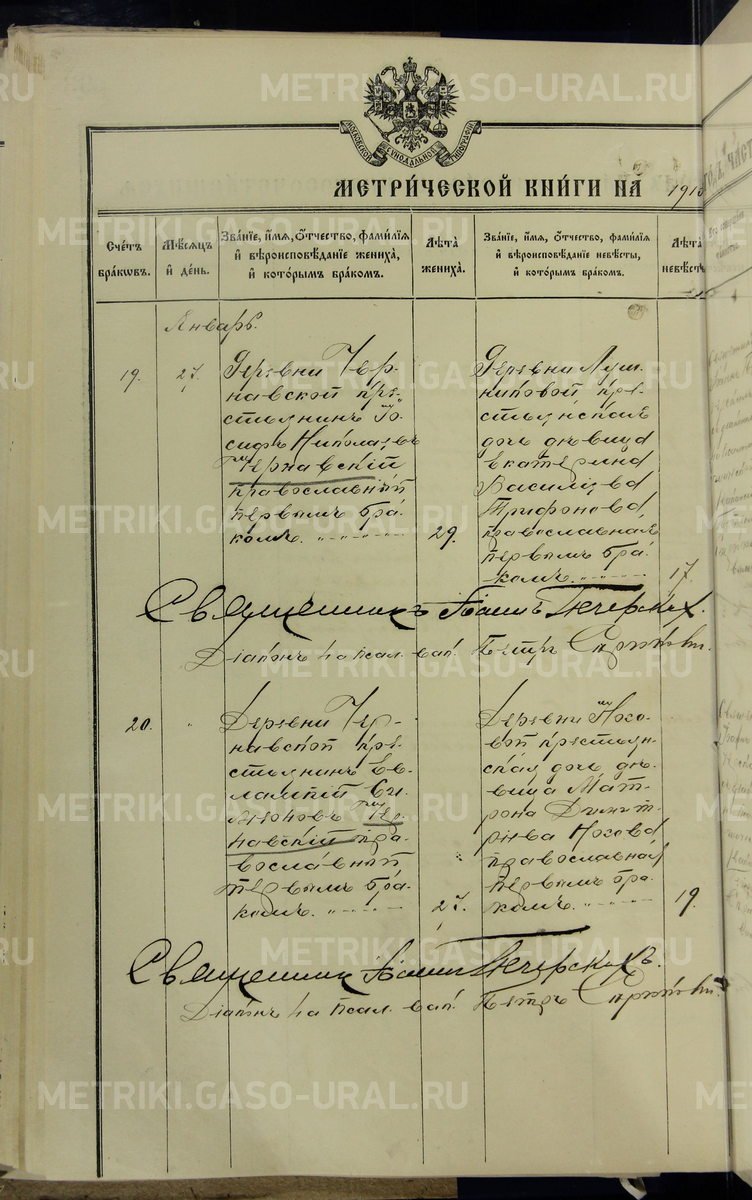 METRIKI.GASO-URAL.RU
МОСКОВСКОЙ СУНОДАЛЬНОЙ ТИПОГРАФІИ
МЕТРИ́ЧЕСКОЙ КНИ́ГИ НА̀ 1913
Сче́тъ бра́кωвъ.
Мѣ́сяцъ и҆ де́нь.
Зва́нїе, и҆́мя, ѻ҆́тчество, фами́лїя и҆ вѣроисповѣ́данїе жениха̀, и҆ кото́рымъ бра́комъ.
Лѣ́та жениха̀.
Зва́нїе, и҆́мя, ѻ҆́тчество, фами́лїя и҆ вѣроисповѣ́данїе невѣ́сты, и҆ кото́рымъ бра́комъ.
Лѣ́та невѣ́сты
Январь.
19.
27.
Деревни Чер-
навской кре-
стьянинъ Іо-
сифъ Николаевъ
Чернавскій
православный
первымъ бра-
комъ.
29.
Деревни Луш-
никовой кре-
стьянская
дочь дѣвица
Екатерина
Василіева
Трифонова
православная
первымъ бра-
комъ.
17.
Священникъ Іоаннъ Печерскихъ.
Діаконъ на псал. вак. Петръ
20.
"
Деревни Чер-
навской кре-
стьянинъ Ев-
лампій Си-
меоновъ Чер-
навскій пра-
вославный
первымъ бра-
комъ.
27.
Деревни Юхо-
вой крестьян-
ская дочь дѣ-
вица Мат-
рона Димит-
ріева Юхова
православная
первымъ бра-
комъ.
19.
Священникъ Іоаннъ Печерскихъ.
Діаконъ на псал. вак. Петръ